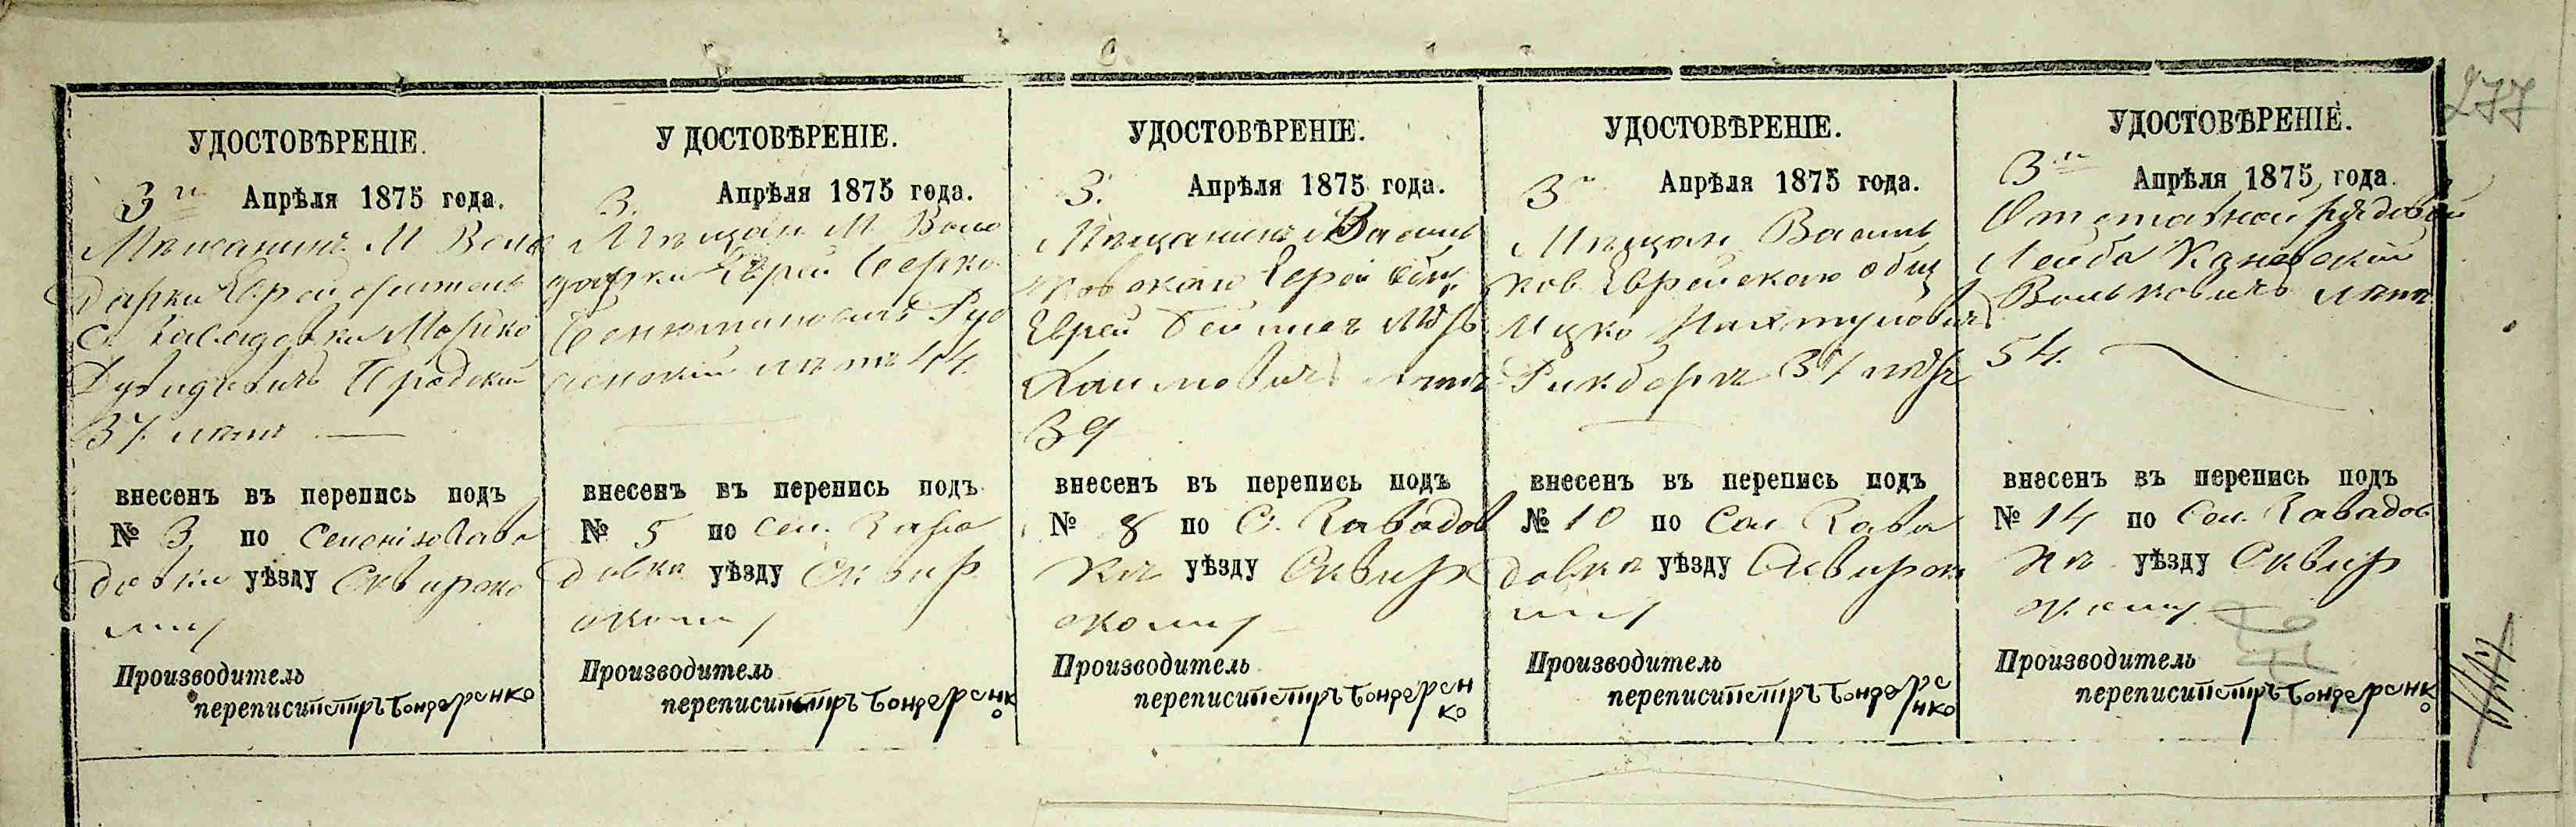 277
УДОСТОВѢРЕНІЕ.
3го Апрѣля 1875 года.
Мѣщанинъ М Воло
дарки Еврей житель
С. Кавадовки Мошко
Дувидовичъ Бродский
37 летъ
внесенъ въ перепись подъ
№ 3 по Селенію Кава
довки уѣзду Сквирско
му
Производитель
переписи петръ бондеренко
УДОСТОВѢРЕНІЕ.
3. Апрѣля 1875 года.
Мѣщан М Воло
дарки Еврей Берко
44.
внесенъ въ перепись подъ
№ 5 по Сел. Кава
довки уѣзду Сквир
скому
Производитель
переписи петръ бондеренко
УДОСТОВѢРЕНІЕ.
3. Апрѣля 1875 года.
Мѣщанинъ Василь
ковскаго
Еврей
Хаимовичъ летъ
39
внесенъ въ перепись подъ
№ 8 по С. Кавадов
кѣ уѣзду Сквир
скому
Производитель
переписи петръ бондерен
ко
УДОСТОВѢРЕНІЕ.
3го Апрѣля 1875 года.
Мѣщан Василь
ков Еврейскаго общ
Ицко
37 летъ
внесенъ въ перепись подъ
№ 10 по Сел Кава
довкѣ уѣзду Сквирско
му
Производитель
переписи петръ бондере
нко
УДОСТОВѢРЕНІЕ.
3го Апрѣля 1875 года.
Отставной рядовой
Лейба Каневский
Вольковичъ летъ
54.
внесенъ въ перепись подъ
№ 14 по Сел. Кавадов
кѣ уѣзду Сквир
скому
Производитель
переписи петръ бондеренко